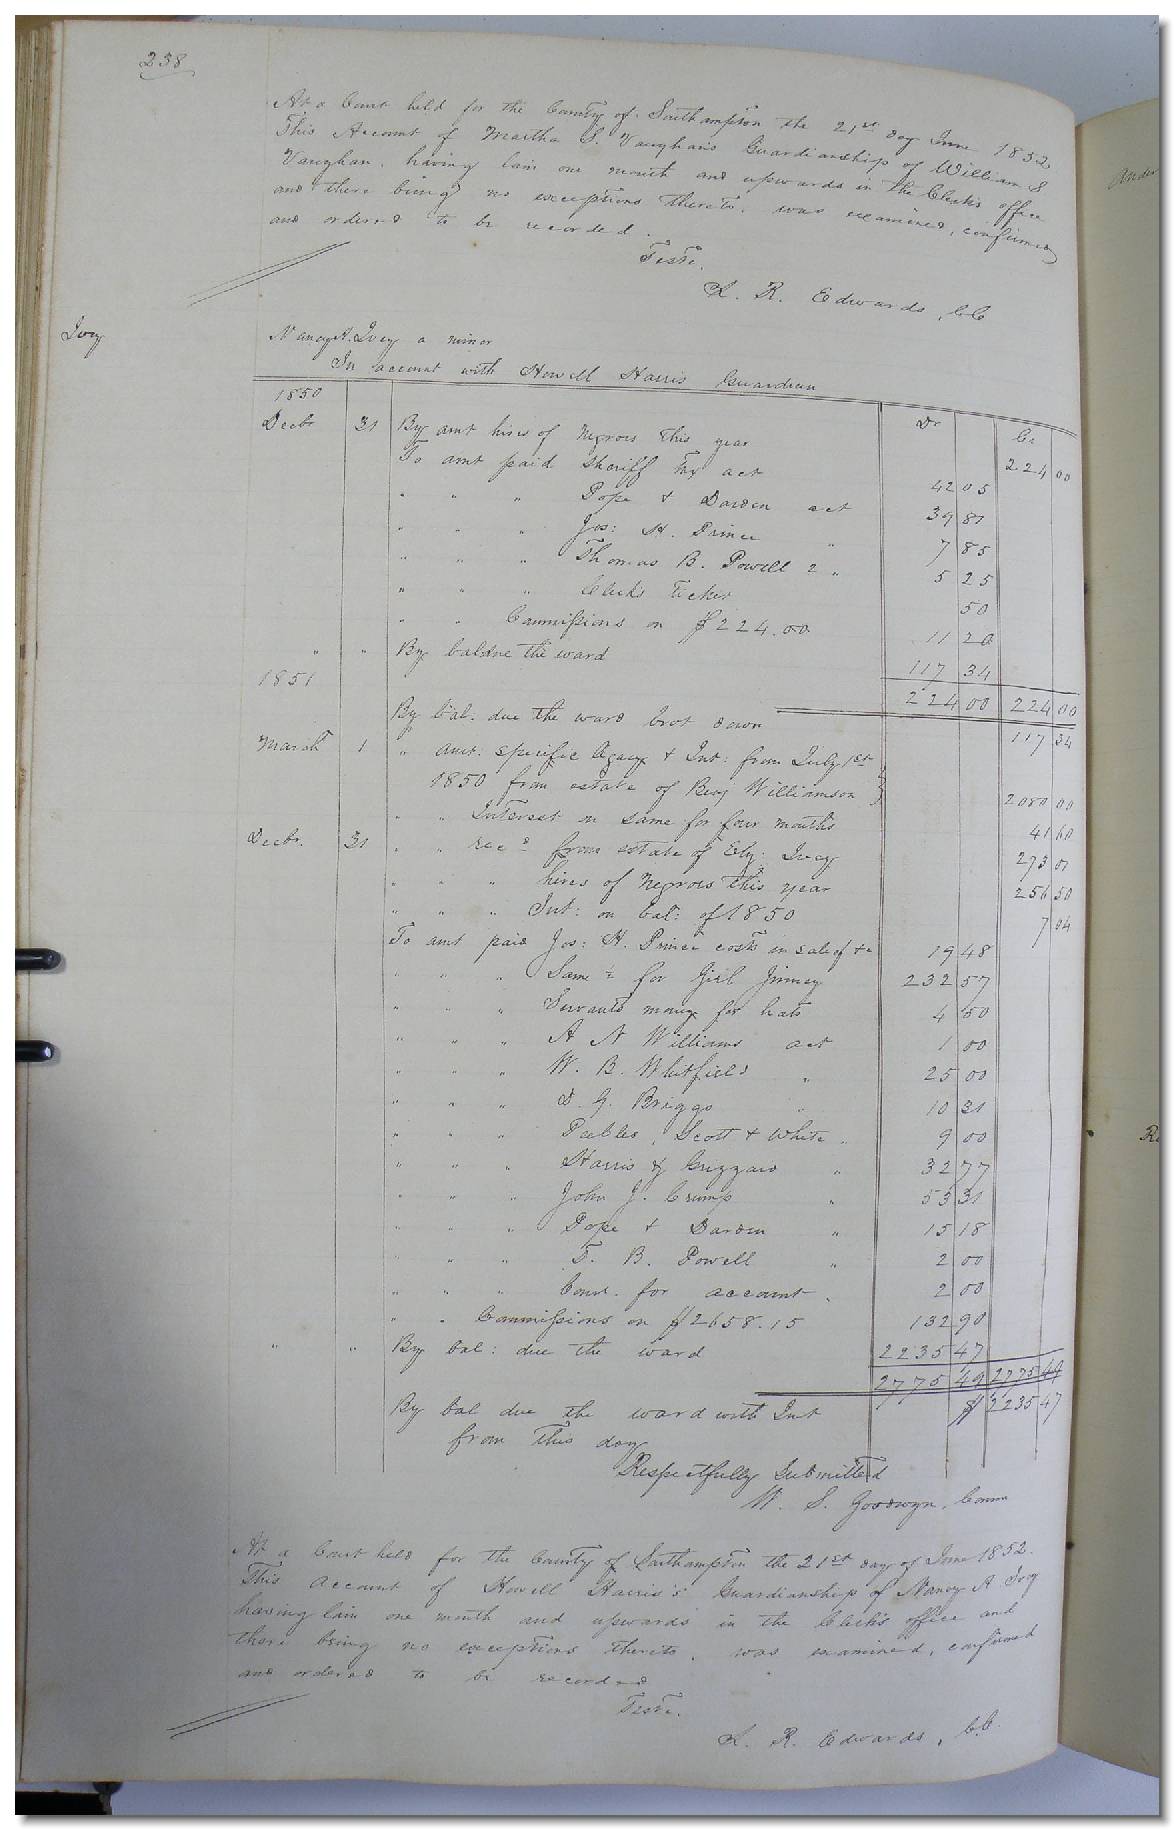 238
At a Court held for the County of Southampton the 21st day June 1852
This Account of Martha S. Vaughan's Guardianship of William S
Vaughan, having lain one month and upwards in the Clerk's office
and there being no exceptions thereto, was examined, confirmed
and ordered to be recorded.
Teste.
L. R. Edwards, C.C
Ivey
Nancy A. Ivey a minor
In account with Howell Harris Guardian
1850 Dr Cr
Decbr 31 By amt hires of Negroes this year 224 00
To amt paid Sheriff Tax act 42 05
" " " Pope & Darden act 39 81
" " " Jos: H. Prince " 7 85
" " " Thomas B. Powell 2 " 5 25
" " " Clerks Ticket 50
" " Commissions on $224.00 11 20
" " By balance the ward 117 34
1851 224 00 224 00
By bal. due the ward brot down 117 34
March 1 " amt. specific legacy & Int: from July 1st
1850 from estate of Benj Williamson } 2080 00
" " Interest on same for four months 41 60
Decbr. 31 " " recd from estate of Eliz: Ivey 273 01
" " " hires of Negroes this year 256 50
" " " Int: on bal: of 1850 7 04
To amt paid Jos: H. Prince costs in sale of &c 19 48
" " " Same " for Girl Jinney 232 57
" " " Servants money for hats 4 50
" " " A N Williams act 1 00
" " " W. B. Whitfield " 25 00
" " " D. G. Briggs " 10 31
" " " Peebles, Scott & White " 9 00
" " " Harris & Grizzard " 32 77
" " " John J. Crump " 53 31
" " " Pope & Darden " 15 18
" " T. B. Powell " 2 00
" " " Court. for account " 2 00
" " Commissions on $2658.15 132 90
" " By bal: due the ward 2235 47
2775 49 2775 49
By bal due the ward with Int $ 2235 47
from this day
Respectfully Submitted
W. S. Goodwyn, Comm
At a Court held for the County of Southampton the 21st day of June 1852.
This account of Howell Harris's Guardianship of Nancy A Ivey
having lain one month and upwards in the Clerk's office and
there being no exceptions thereto, was examined, confirmed
and ordered to be recorded
Teste.
L. R. Edwards, C.C.